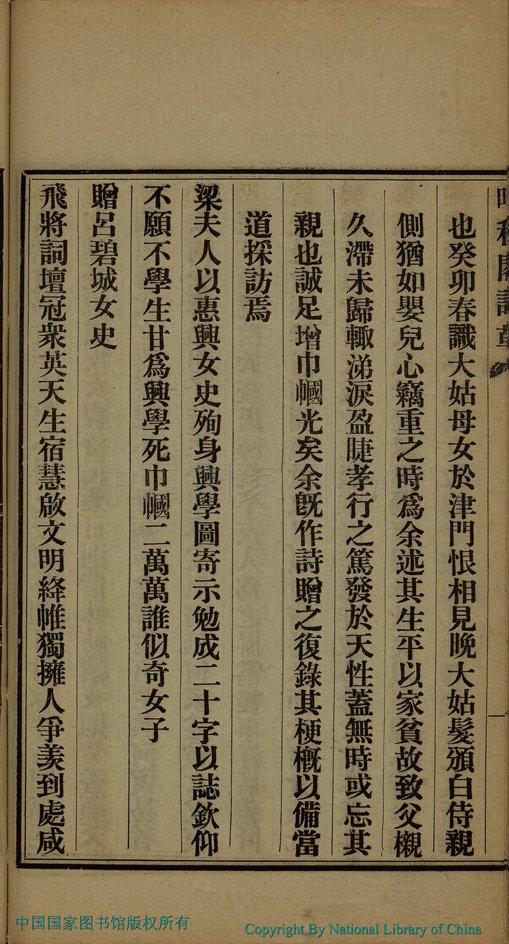 也癸卯春識大姑母女於津門恨相見晚大姑髮頒白侍親
側猶如嬰兒心竊重之時爲余述其生平以家貧故致父櫬
久滯未歸輙涕淚盈睫孝行之篤發於天性蓋無時或忘其
親也誠足增巾幗光矣余既作詩贈之復錄其梗概以備當
道採訪焉
梁夫人以惠興女史殉身興學圖寄示勉成二十字以誌欽仰
不願不學生甘爲興學死巾幗二萬萬誰似奇女子
贈呂碧城女史
飛將詞壇冠衆英天生宿慧啟文明絳帷獨擁人爭羨到處咸
中国国家图书馆版权所有
Copyright By National Library of China